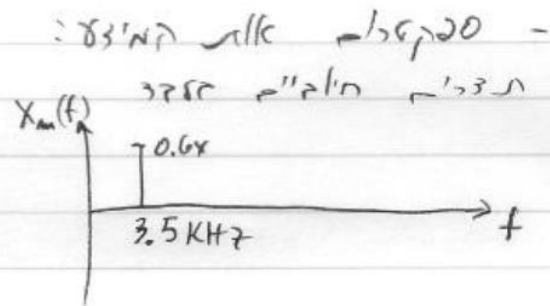 - ספקטרום אות המידע:
תדרים חיוביים בלבד
Xm(f)
0.6v
3.5 KHz
f